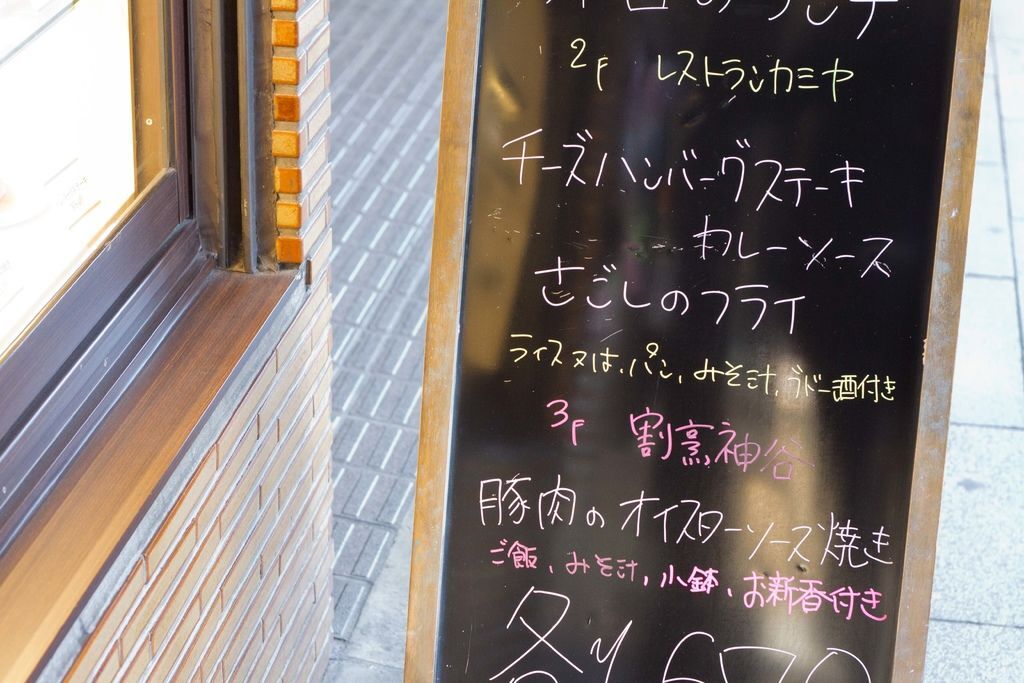 本日のランチ
2F レストランカミヤ
チーズハンバーグステーキ
カレーソース
さごしのフライ
ライス又は、パン、みそ汁、
付き
3F 割烹神谷
豚肉のオイスターソース焼き
ご飯、みそ汁、小鉢、お新香付き
各¥670